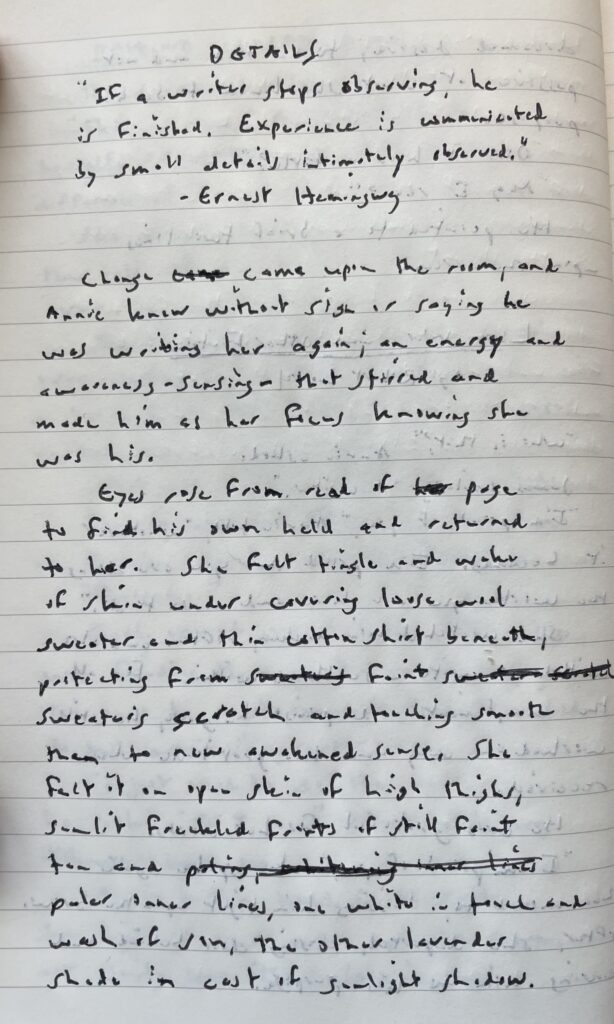 DETAILS
"If a writer stops observing, he
is finished. Experience is communicated
by small details intimately observed."
- Ernest Hemingway
Change came upon the room, and
Annie knew without sign or saying he
was writing her again; an energy and
awareness - sensing - that stirred and
made him as her focus knowing she
was his.
Eyes rose from read of page
to find his own held and returned
to her. She felt tingle and wake
of skin under covering loose wool
sweater and thin cotton shirt beneath,
protecting from faint
sweater's scratch and touching smooth
them to new awakened sense. She
felt it on open skin of high thighs,
sunlit freckled fronts of still faint
tan and
paler inner lines, one white in touch and
wash of sun, the other lavender
shade in cast of sunlight shadow.